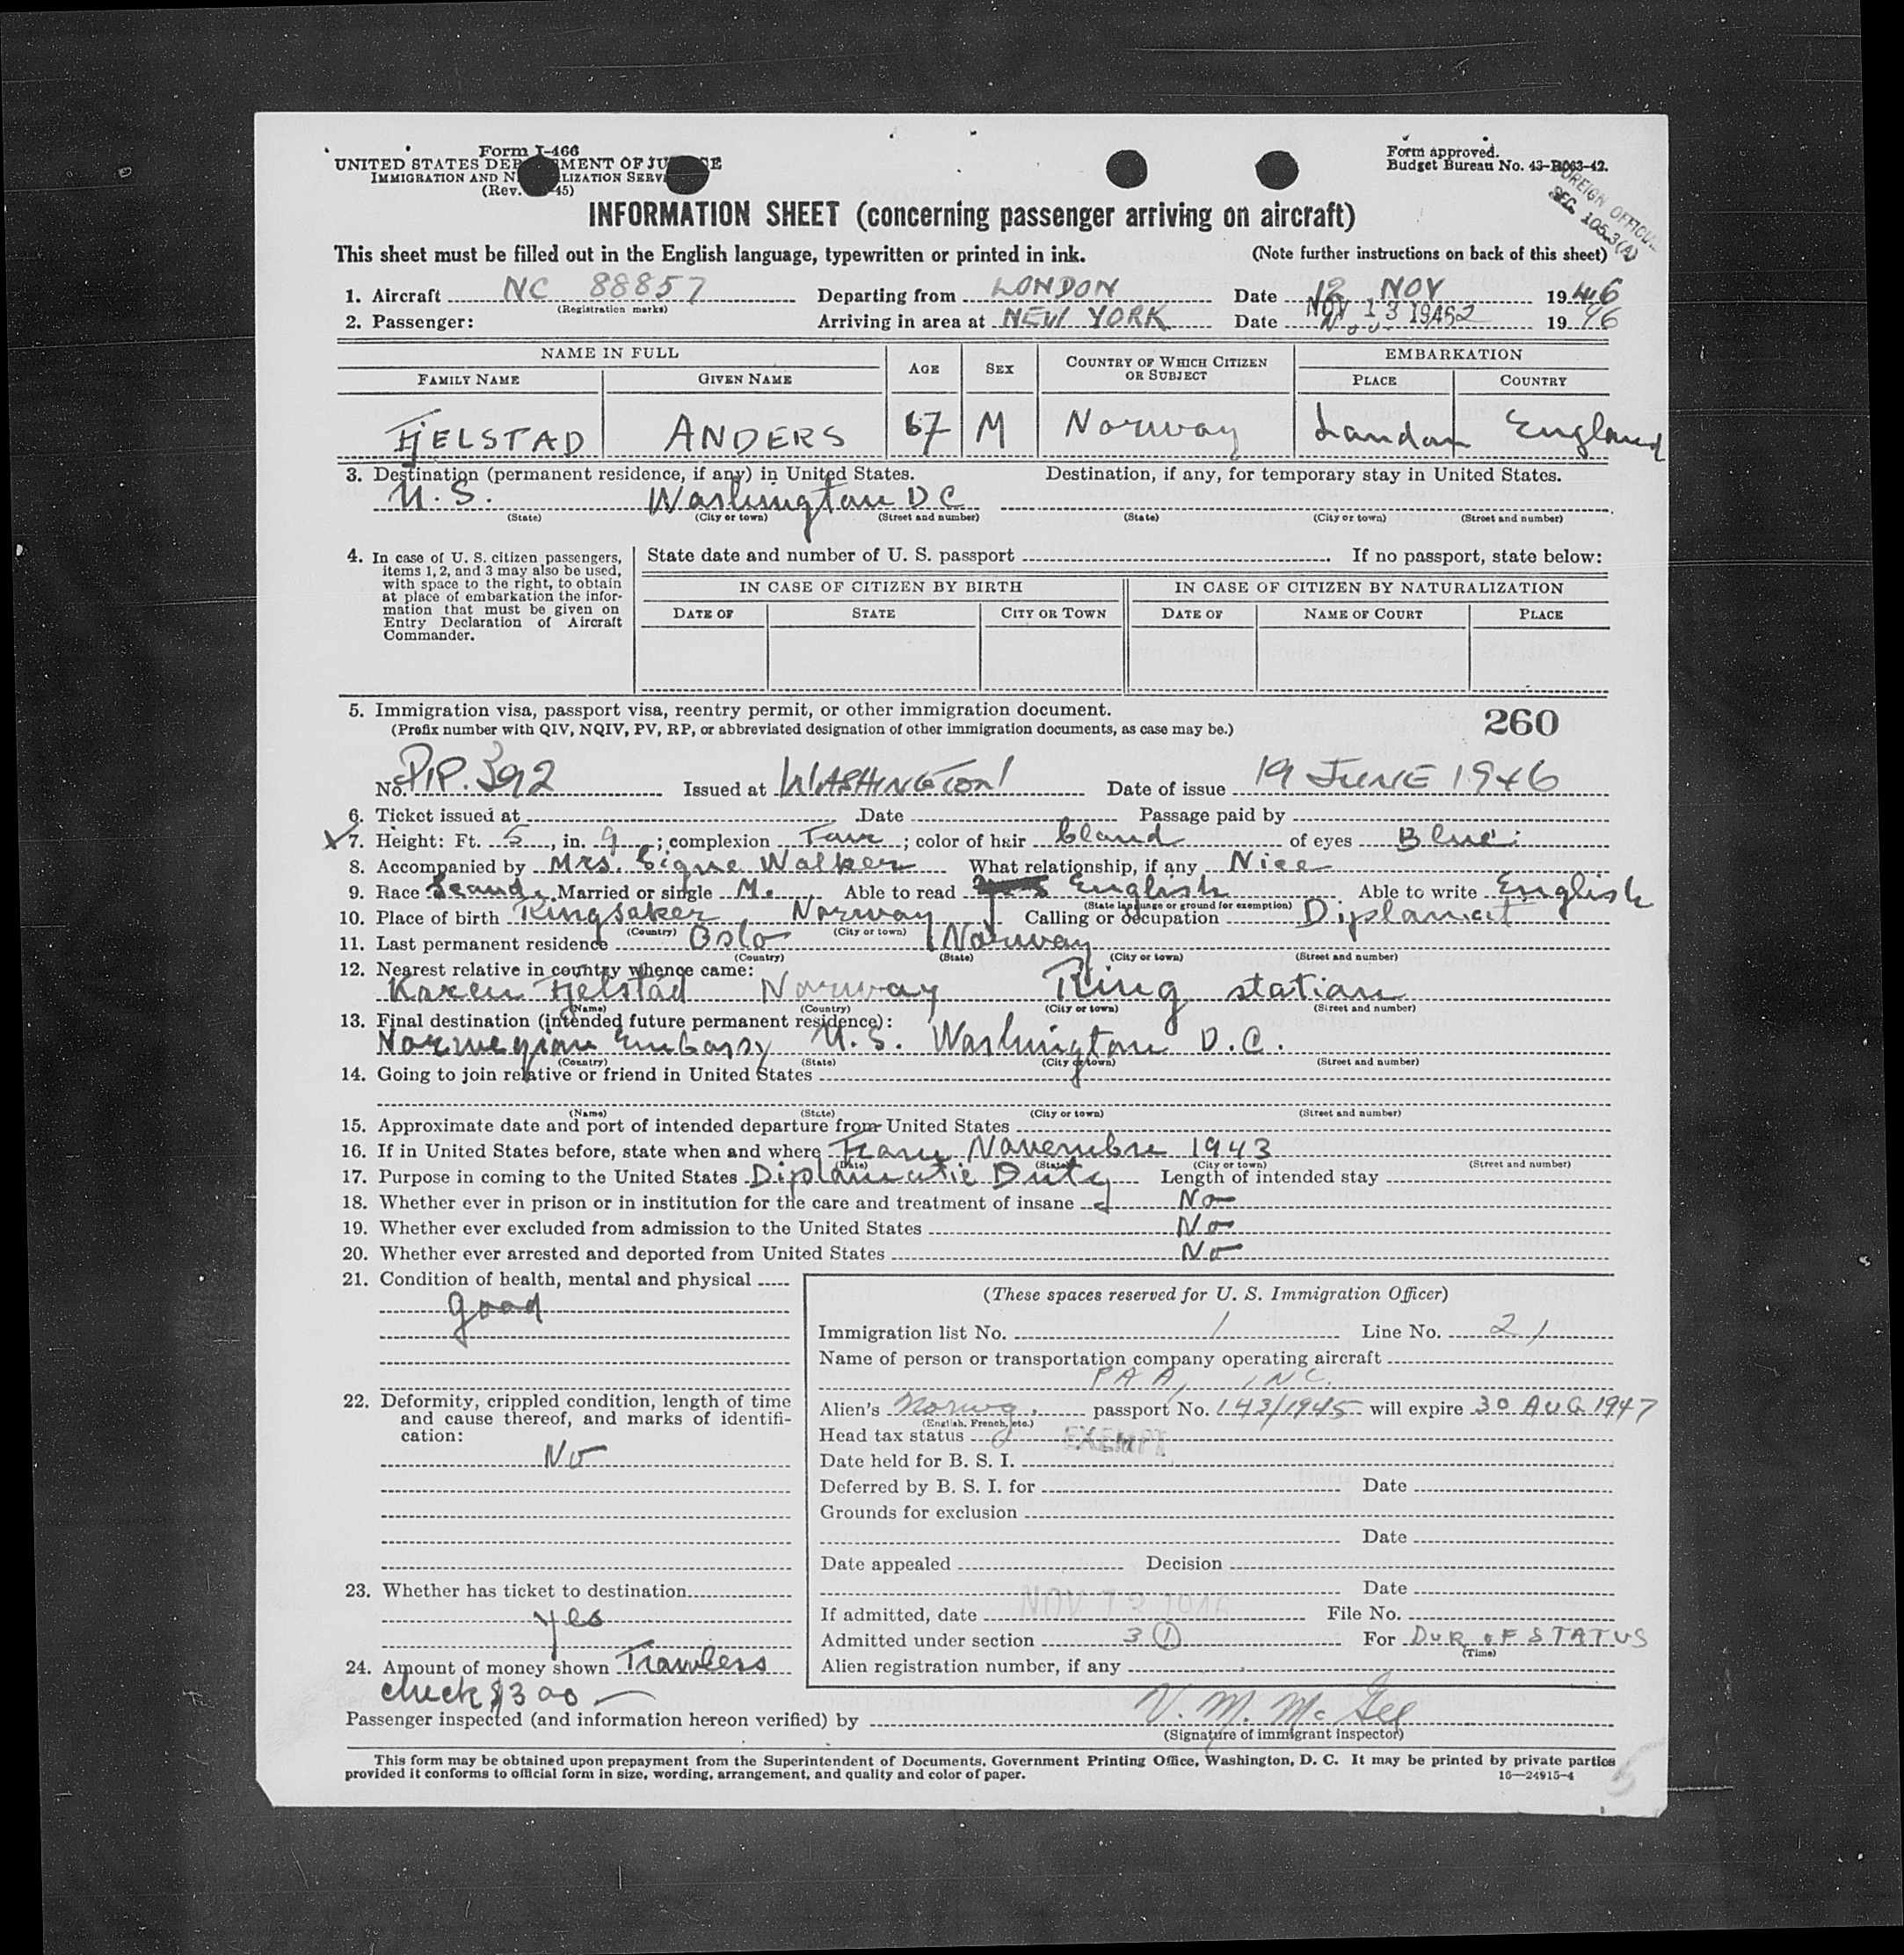 Form I-466
UNITED STATES DEPARTMENT OF JUSTICE
IMMIGRATION AND NATURALIZATION SERVICE
(Rev. 45)
Form approved.
Budget Bureau No. 43-R063-42.
FOREIGN OFFICIAL
SEC. 105.3(A)
INFORMATION SHEET (concerning passenger arriving on aircraft)
This sheet must be filled out in the English language, typewritten or printed in ink. (Note further instructions on back of this sheet)
1. Aircraft NC 88857 Departing from LONDON Date 12 NOV 1946
(Registration marks)
2. Passenger: Arriving in area at NEW YORK Date NOV 13 1946 1946
NAME IN FULL AGE SEX COUNTRY OF WHICH CITIZEN OR SUBJECT EMBARKATION
FAMILY NAME GIVEN NAME PLACE COUNTRY
FJELSTAD ANDERS 67 M Norway London England
3. Destination (permanent residence, if any) in United States. Destination, if any, for temporary stay in United States.
U.S. Washington D C
(State) (City or town) (Street and number) (State) (City or town) (Street and number)
4. In case of U. S. citizen passengers, items 1, 2, and 3 may also be used, with space to the right, to obtain at place of embarkation the information that must be given on Entry Declaration of Aircraft Commander.
State date and number of U. S. passport If no passport, state below:
IN CASE OF CITIZEN BY BIRTH IN CASE OF CITIZEN BY NATURALIZATION
DATE OF STATE CITY OR TOWN DATE OF NAME OF COURT PLACE
5. Immigration visa, passport visa, reentry permit, or other immigration document. 260
(Prefix number with QIV, NQIV, PV, RP, or abbreviated designation of other immigration documents, as case may be.)
No. DIP. 392 Issued at WASHINGTON Date of issue 19 JUNE 1946
6. Ticket issued at Date Passage paid by
7. Height: Ft. 5, in. 9; complexion Fair; color of hair bland of eyes Blue
8. Accompanied by Mrs. Signe Walker What relationship, if any Niee
9. Race Scand. Married or single M. Able to read English Able to write English
(State language or ground for exemption)
10. Place of birth Ringsaker Norway Calling or occupation Diplamat
(Country) (City or town)
11. Last permanent residence Oslo Norway
(Country) (State) (City or town) (Street and number)
12. Nearest relative in country whence came:
Karen Fjelstad Norway Ring station
(Name) (Country) (City or town) (Street and number)
13. Final destination (intended future permanent residence):
Norwegian Embassy U.S. Washington D.C.
(Country) (State) (City or town) (Street and number)
14. Going to join relative or friend in United States
(Name) (State) (City or town) (Street and number)
15. Approximate date and port of intended departure from United States
16. If in United States before, state when and where From Novembre 1943
(Date) (State) (City or town) (Street and number)
17. Purpose in coming to the United States Diplomatic Duty Length of intended stay
18. Whether ever in prison or in institution for the care and treatment of insane No
19. Whether ever excluded from admission to the United States No
20. Whether ever arrested and deported from United States No
21. Condition of health, mental and physical
good
22. Deformity, crippled condition, length of time and cause thereof, and marks of identification:
No
23. Whether has ticket to destination
yes
24. Amount of money shown Travlers
check $300 —
(These spaces reserved for U. S. Immigration Officer)
Immigration list No. 1 Line No. 21
Name of person or transportation company operating aircraft
PAA, INC.
Alien's Norwg. passport No. 143/1945 will expire 30 AUG 1947
(English, French, etc.)
Head tax status EXEMPT
Date held for B. S. I.
Deferred by B. S. I. for Date
Grounds for exclusion
Date
Date appealed Decision
Date
If admitted, date NOV 13 1946 File No.
Admitted under section 3 (1) For DUR OF STATUS
(Time)
Alien registration number, if any
Passenger inspected (and information hereon verified) by V. M. McGee
(Signature of immigrant inspector)
This form may be obtained upon prepayment from the Superintendent of Documents, Government Printing Office, Washington, D. C. It may be printed by private parties
provided it conforms to official form in size, wording, arrangement, and quality and color of paper. 16—24915-4